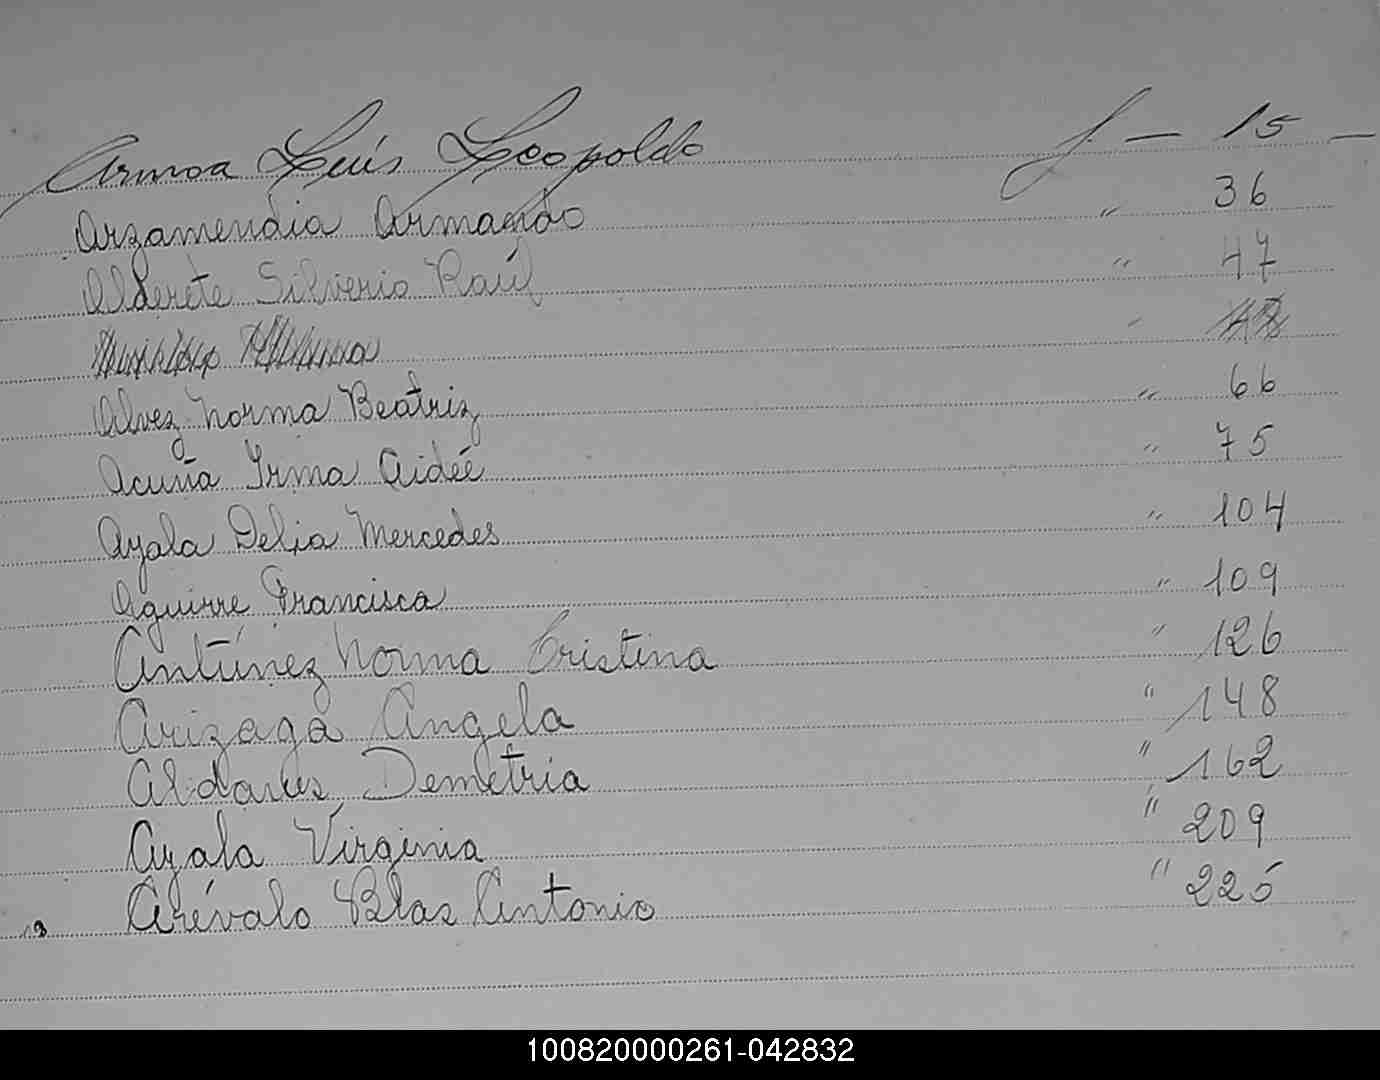 Armoa Luís Leopoldo f. — 15 —
Arzamendia Armando " 36
Alderete Silverio Raúl " 47
Alvez Norma Beatriz " 66
Acuña Irma Aideé " 75
Ayala Delia Mercedes " 104
Aguirre Francisca " 109
Antúnez Norma Cristina " 126
Arizaga Angela " 148
Demetria " 162
Ayala Virginia " 209
Arévalo Blas Antonio " 225
100820000261-042832